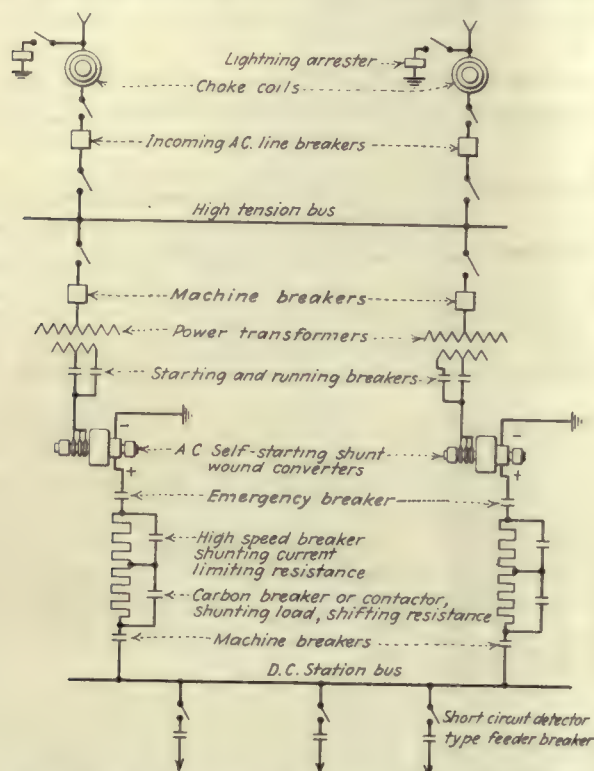 Lightning arrester
Choke coils
Incoming A.C. line breakers
High tension bus
Machine breakers
Power transformers
Starting and running breakers
-
-
A C Self-starting shunt
wound converters
+
+
Emergency breaker
High speed breaker
shunting current
limiting resistance
Carbon breaker or contactor,
shunting load, shifting resistance
Machine breakers
D.C. Station bus
Short circuit detector
type feeder breaker